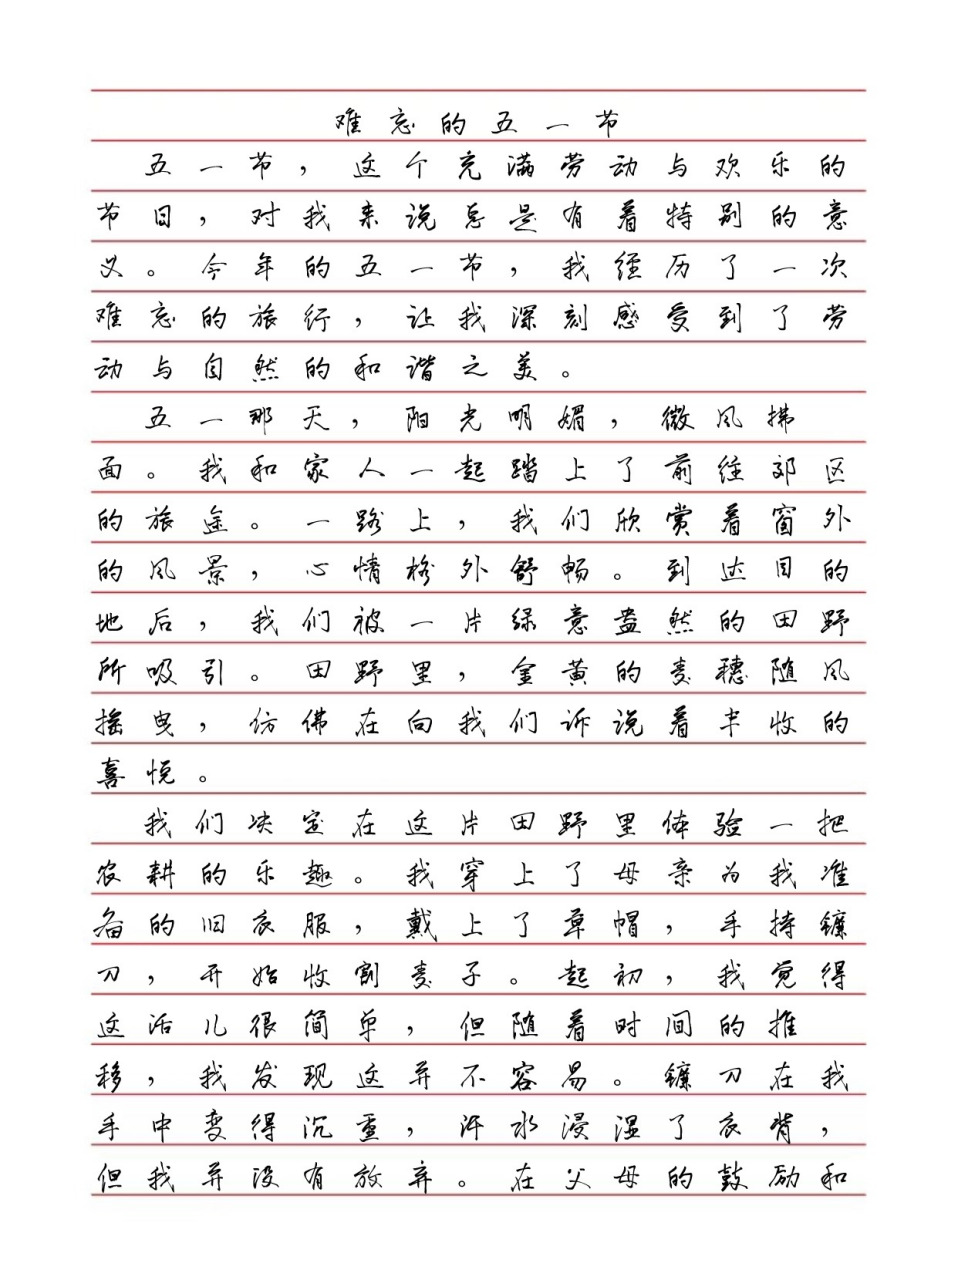 难忘的五一节
五一节，这个充满劳动与欢乐的
节日，对我来说总是有着特别的意
义。今年的五一节，我经历了一次
难忘的旅行，让我深刻感受到了劳
动与自然的和谐之美。
五一那天，阳光明媚，微风拂
面。我和家人一起踏上了前往郊区
的旅途。一路上，我们欣赏着窗外
的风景，心情格外舒畅。到达目的
地后，我们被一片绿意盎然的田野
所吸引。田野里，金黄的麦穗随风
摇曳，仿佛在向我们诉说着丰收的
喜悦。
我们决定在这片田野里体验一把
农耕的乐趣。我穿上了母亲为我准
备的旧衣服，戴上了草帽，手持镰
刀，开始收割麦子。起初，我觉得
这活儿很简单，但随着时间的推
移，我发现这并不容易。镰刀在我
手中变得沉重，汗水浸湿了衣背，
但我并没有放弃。在父母的鼓励和